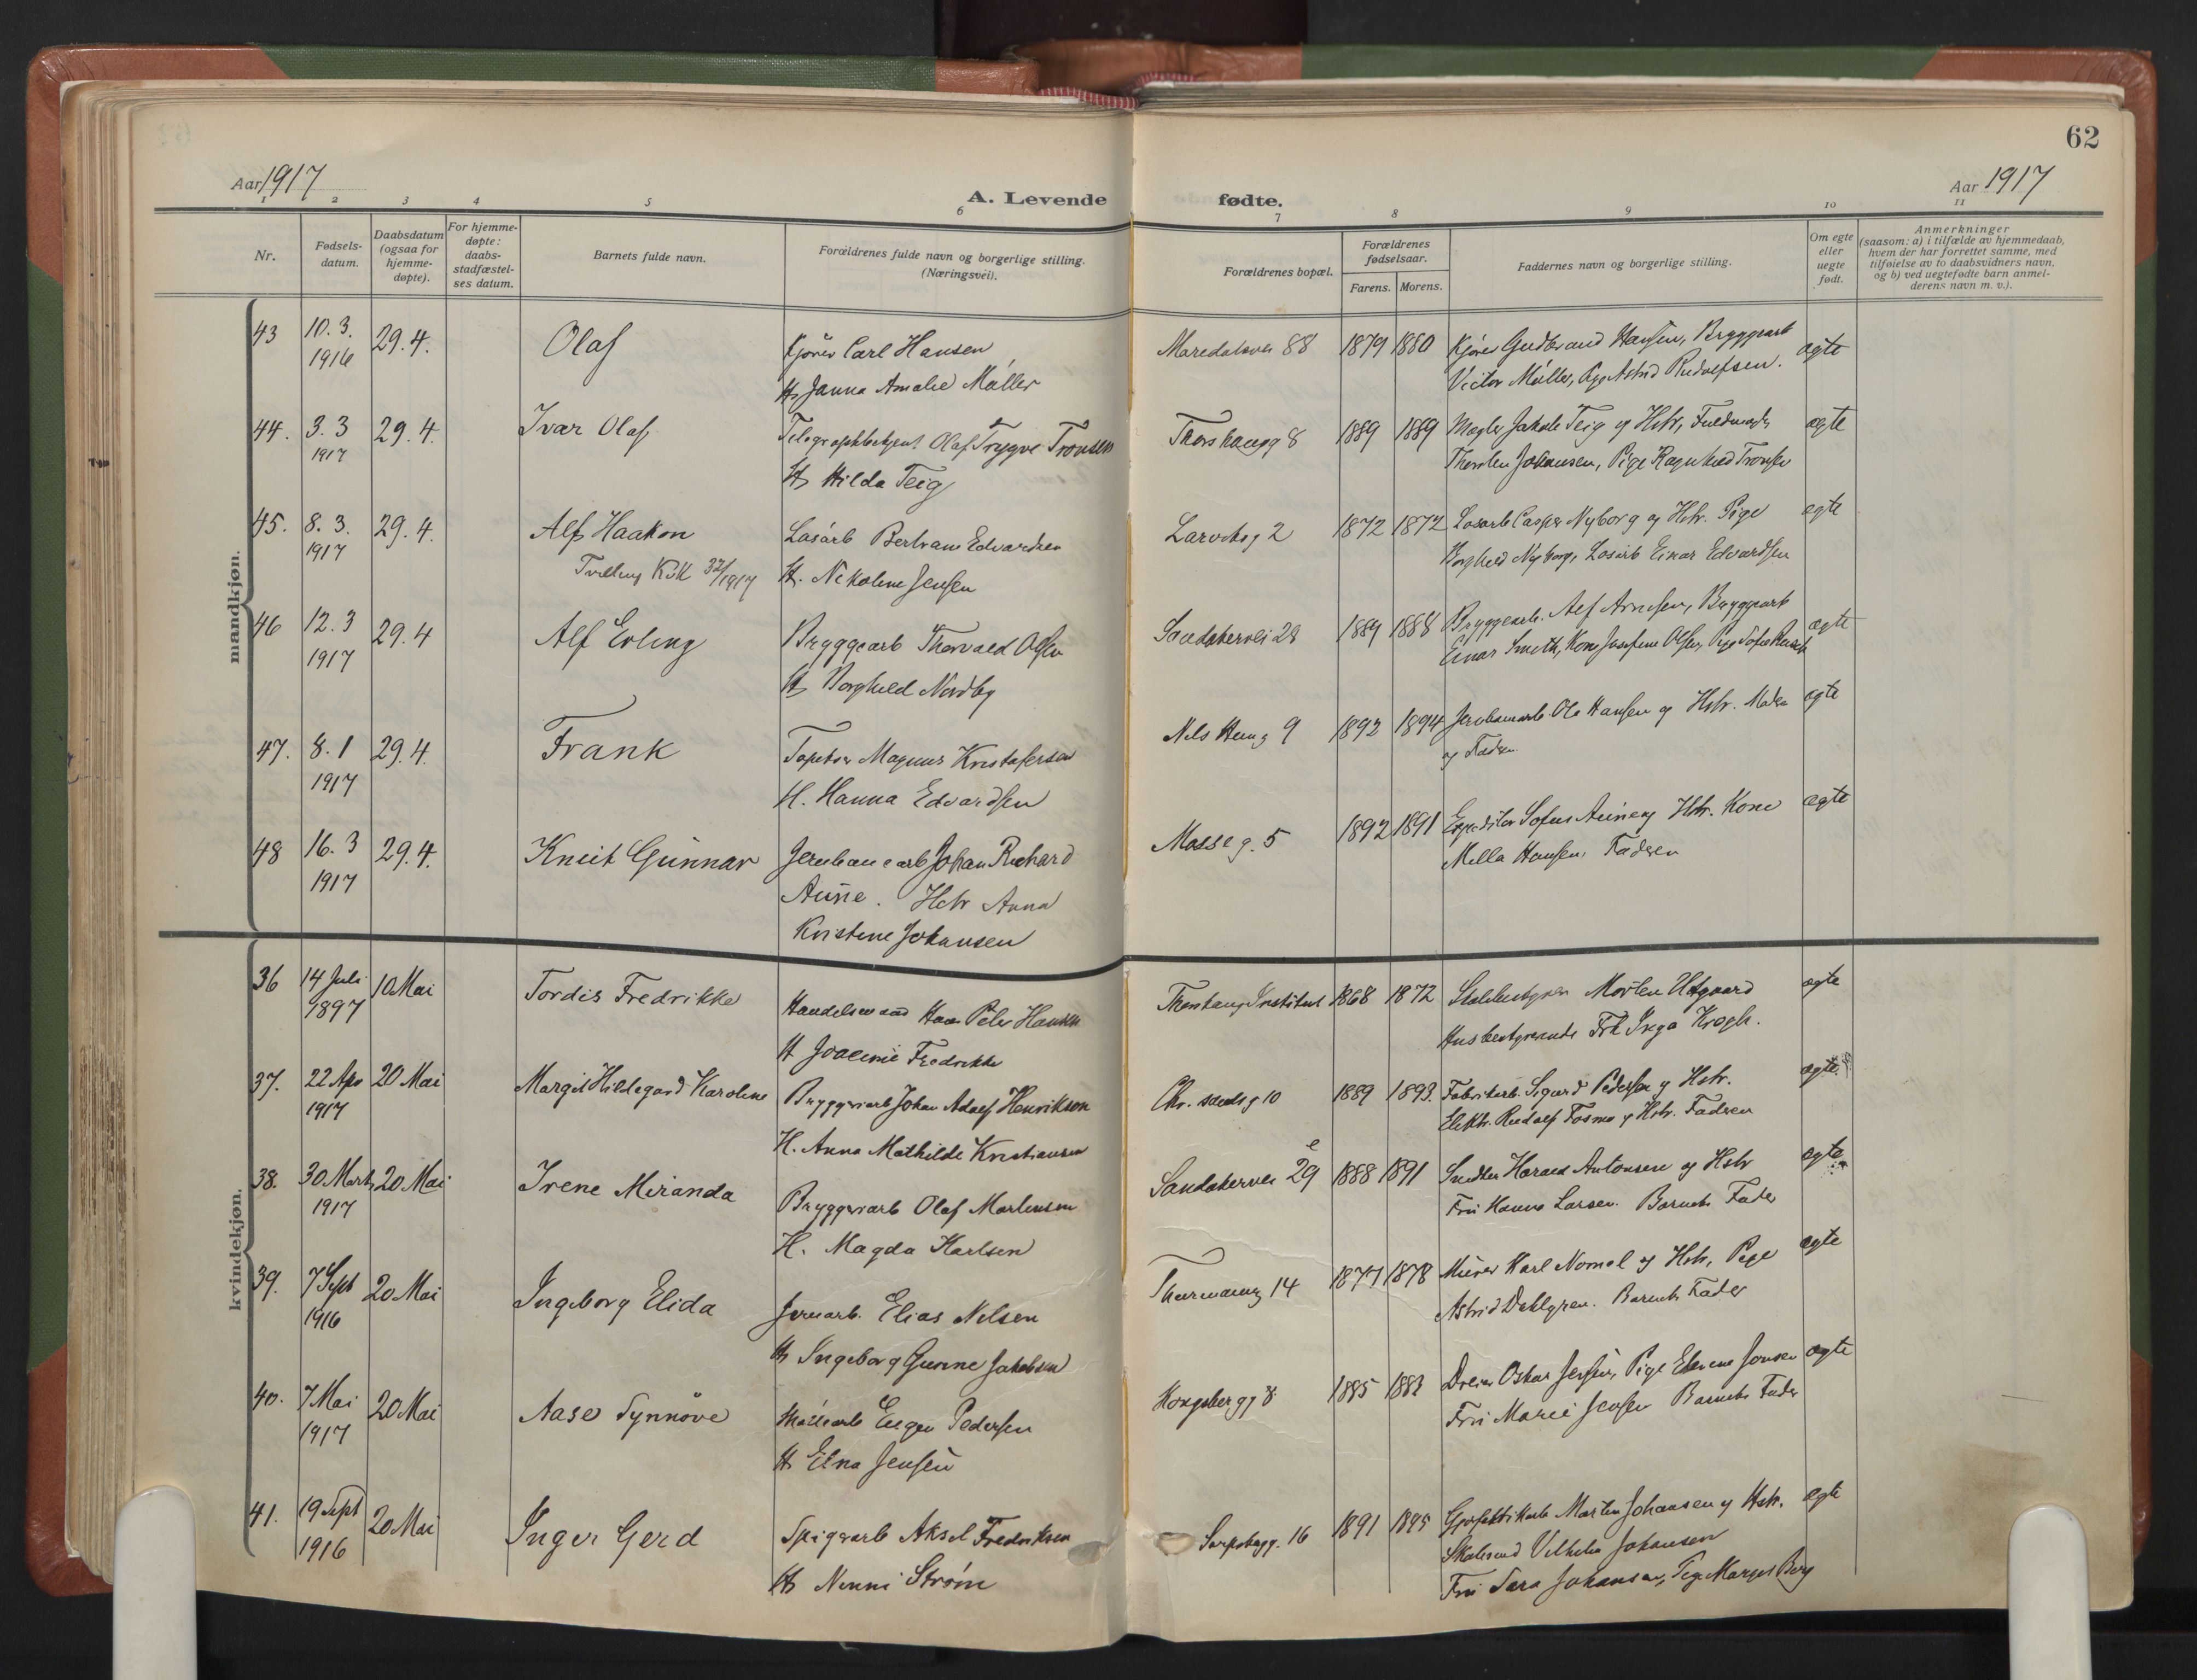 62
Aar 1917
A. Levende fødte.
Aar 1917
1 2 3 4 5 6 7 8 9 10 11
Nr.
Fødsels-
datum.
Daabsdatum
(ogsaa for
hjemme-
døpte).
For hjemme-
døpte:
daabs-
stadfæstel-
ses datum.
Barnets fulde navn.
Forældrenes fulde navn og borgerlige stilling.
(Næringsvei).
Forældrenes bopæl.
Forældrenes
fødselsaar.
Farens. Morens.
Faddernes navn og borgerlige stilling.
Om egte
eller
uegte
født.
Anmerkninger
(saasom: a) i tilfælde av hjemmedaab,
hvem der har forrettet samme, med
tilføielse av to daabsvidners navn,
og b) ved uegtefødte barn anmel-
derens navn m. v.).
mandkjøn.
43 10. 3. 1916 29. 4. Olaf
Kjörer Carl Hansen
H Janna Amalie Müller
Maredalsvei 88 1879 1880
Kjörer Gudbrand Hansen, Bryggearb
Victor Müller, Pige Astrid Rudolfsen.
egte
44. 3. 3 1917 29. 4. Ivar Olaf
Telegrafbetjent Olaf Trygve Tronsen
H Hilda Teig
Thorshaugg 8 1889 1889
Mægler Jakob Teig og Hstr,
Johansen, Pige Ragnhild Tronsen
egte
45. 8. 3. 1917 29. 4. Alf Haakon
Tvilling KvK 32/1917
Losarb Bertram Edvardsen
H. Nikoline Jensen
Larvikg 2 1872 1872
Losarb Casper Nyborg og Hstr. Pige
Borghild Nyborg, Losarb Einar Edvardsen
egte
46 12. 3 1917 29. 4 Alf Erling
Bryggearb Thorvald Olsen
H Borghild Nordby
Sandakervei 28 1889 1888
Bryggearb. Alf Arnesen, Bryggearb
Einar Smith, Kone Josefine Olsen, Pige Sofie
egte
47. 8. 1 1917 29. 4. Frank
Tapetser Magnus Kristofersen
H. Hanna Edvardsen
Nils Huusg 9 1892 1894
Jernbanearb. Ole Hansen og Hstr. Moder
og Fader
egte
48 16. 3 1917 29. 4. Knut Gunnar
Jernbanearb Johan Richard
Aune. Hstr Anna
Kristine Johansen
Mosseg. 5 1892 1891
Expeditör Sofus Aune og Hstr. Kone
Milla Hansen. Faderen
egte
kvindekjøn.
36 14 Juli 1897 10 Mai Tordis Fredrikke
Handelsmand Hans Peter Hansen
H Joacime Fredrikke
Thorshaug Institut 1868 1872
Morten Utgaard
Husbestyrerinde Frk Inga Krogh.
egte
37. 22 Apr 1917 20 Mai Margit Hildegard Karoline
Bryggeriarb Johan Adolf Henriksen
H. Anna Mathilde Kristiansen
Chr. sandsg 10 1889 1893.
Fabrikarb. Sigurd Pedersen og Hstr.
Elektr. Rudolf Fosmo og Hstr. Faderen
egte
38. 30 Marts 1917 20 Mai Irene Miranda
Bryggeriarb Olaf Martinsen
H. Magda Karlsen
Sandakervei 29 e 1888 1891
Snedker Harald Antonsen og Hstr
Fru Hanna Larsen. Barnets Fader
egte
39. 7 Sept 1916 20 Mai Ingeborg Elida
Jernarb. Elias Nilsen
H Ingeborg Gurine Jakobsen
Thurmannsg 14 1877 1878
Murer Karl Nomel og Hstr, Pige
Astrid Dahlgren. Barnets Fader
egte
40. 7 Mai 1917 20 Mai Aase Synnöve
Eugen Pedersen
H Elna Jensen
Kongsbergg 8 1885 1883
Dreier Oskar Jensen, Pige Jensen
Fru Marie Jensen Barnets Fader
egte
41. 19 Sept 1916 20 Mai Inger Gerd
Spigerarb Aksel Fredriksen
H Nenni Ström
Sarpsborgg. 16 1891 1895
Martin Johansen og Hstr.
Vilhelm Johansen
Fru Sara Johansen, Pige Margit Berg
egte